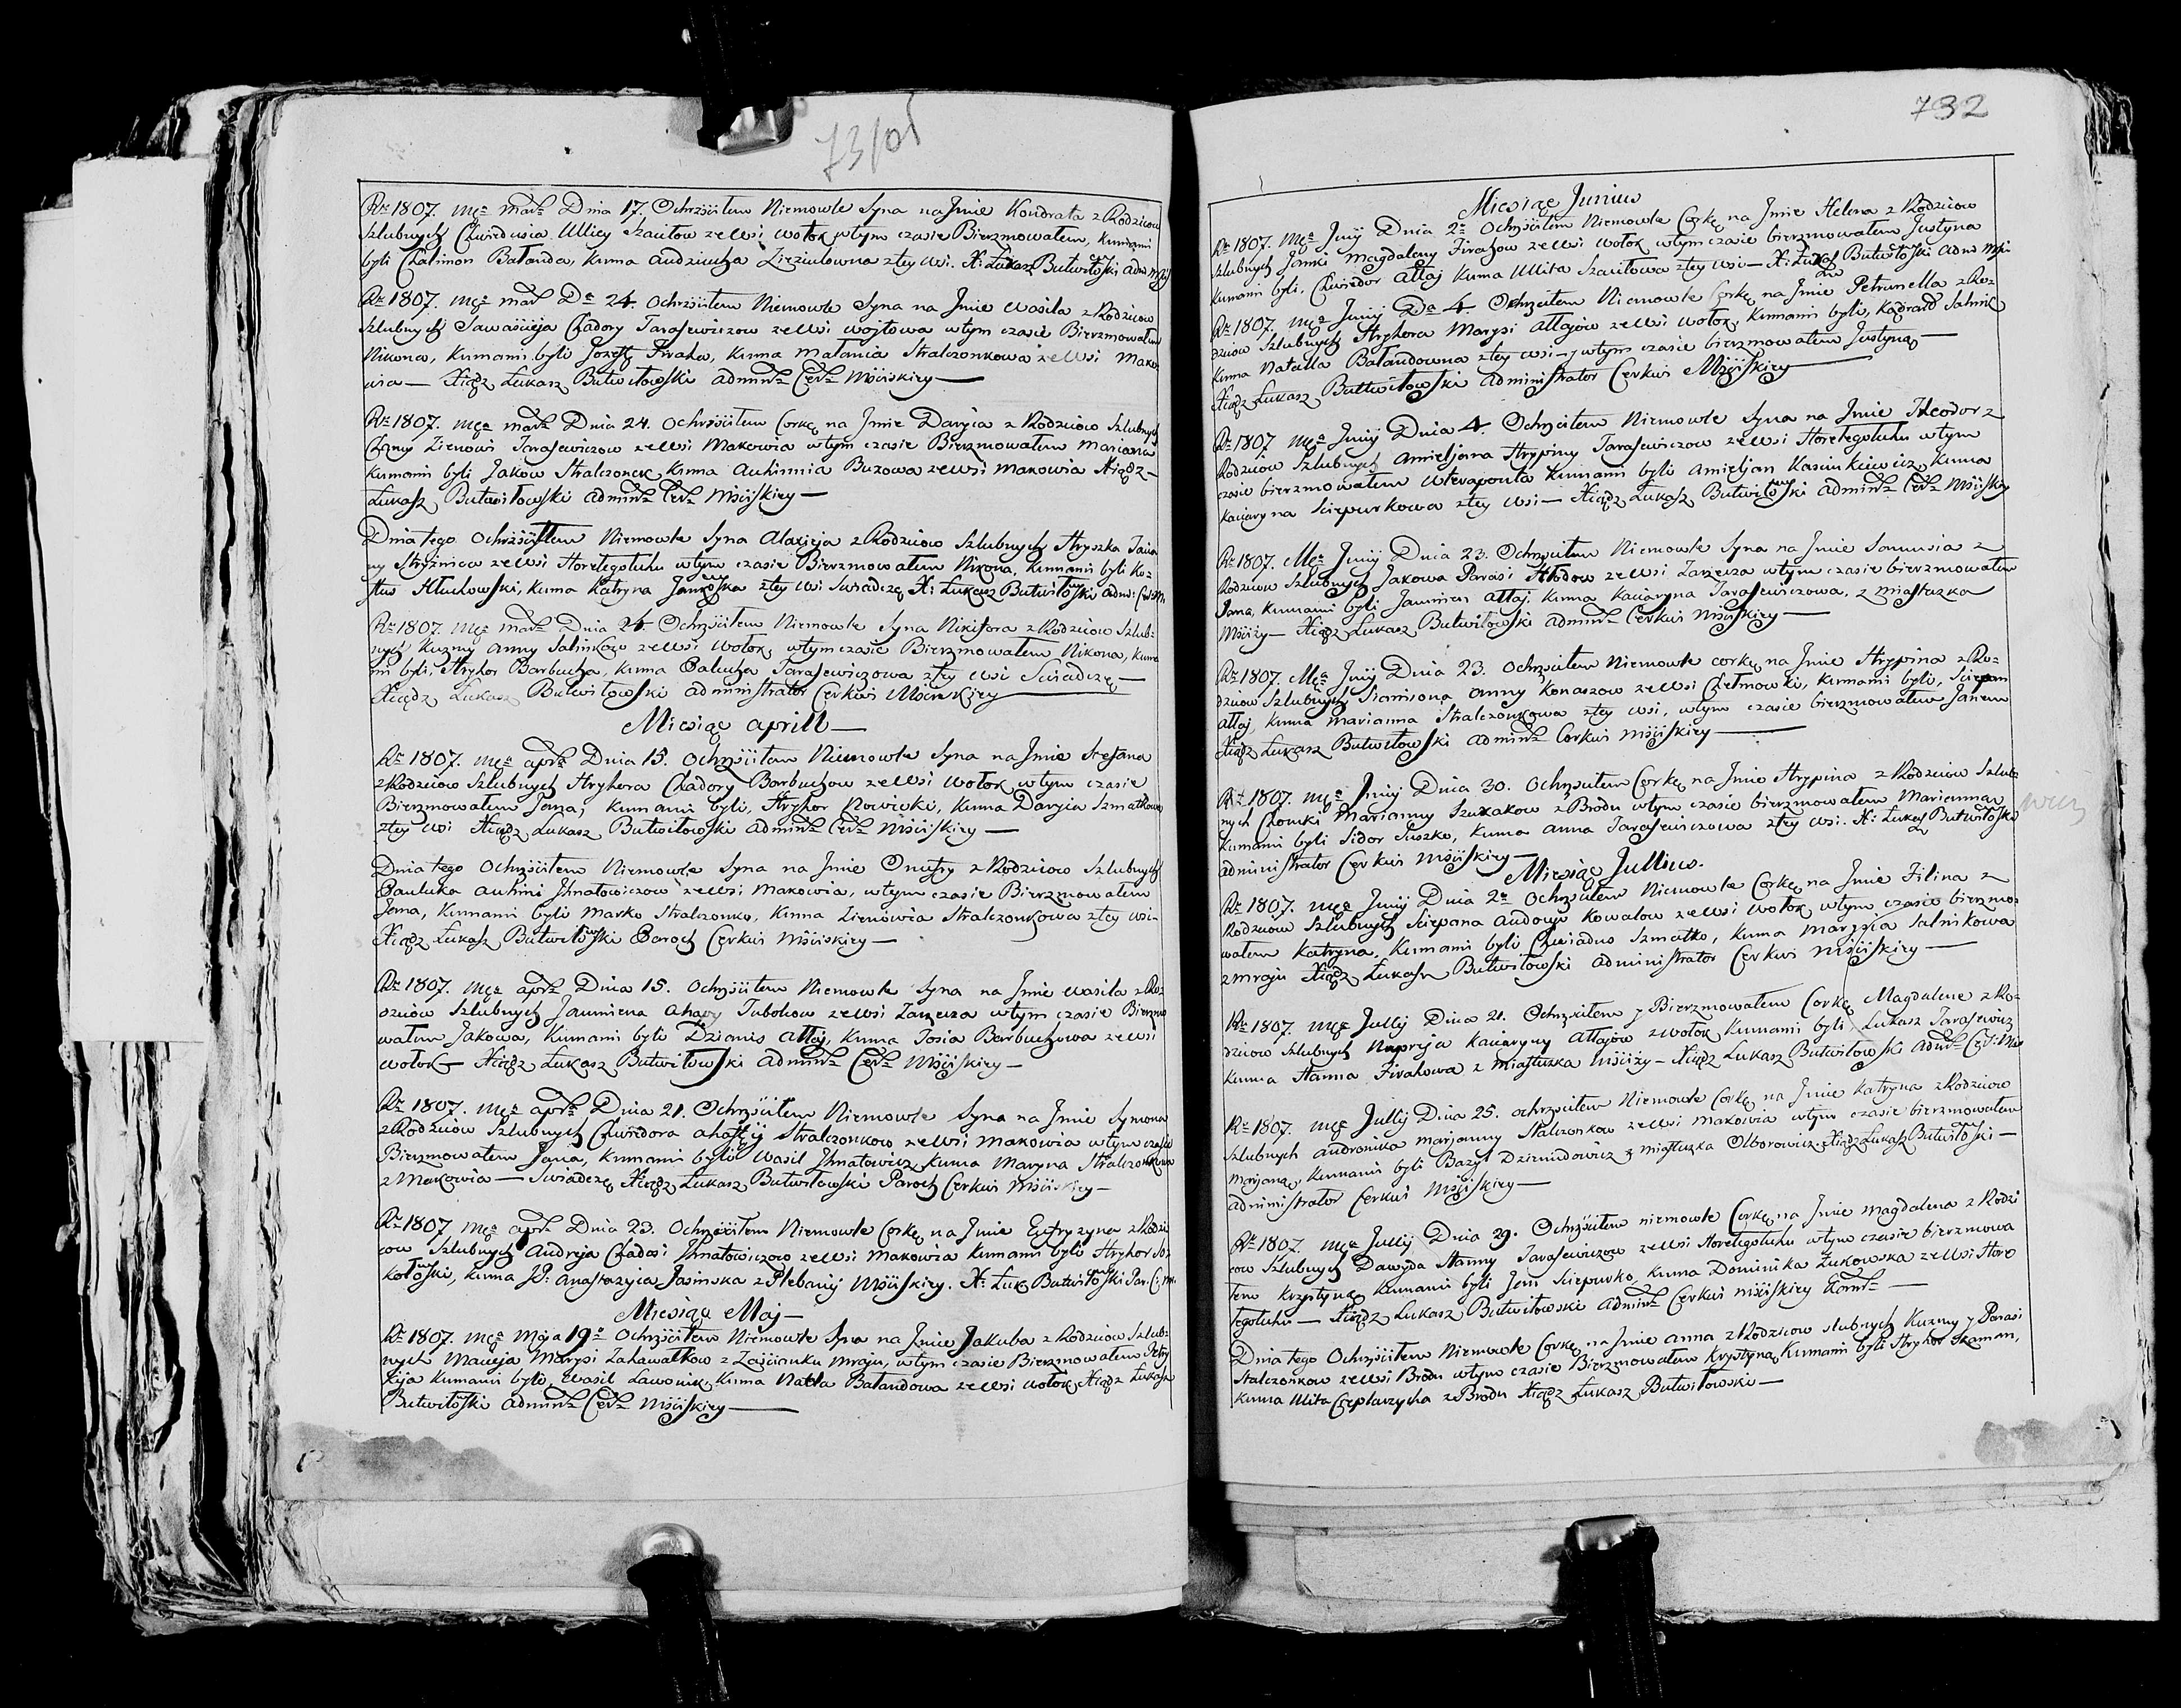 73/об
Rku 1807. Mca mar. Dnia 17. Ochrzściłem Niemowle Syna na Jmie Kondrata z Rodziców
Szlubnych Chwiedusia Ulity Szaciłow ze Wsi Wołok wtym czasie Bierzmowałem, Kumami
byli Chalimon Bałanda, Kuma Audziucha zteyWsi. X: Łukasz Butwiłowski adm
Rku 1807. Mca mar Da 24. Ochrzściłem Niemowle Syna na Jmie Wasila z Rodziców
Szlubnych Sawaścieja Chadory Tarasewiczow ze Wsi Wojtowa wtym czasie Bierzmowałem
Nikona, Kumami byli Jozef Ziraha, Kuma Matania Stralczonkowa ze Wsi Mako
wia — Xiądz Łukasz Butwiłowski admin Cer Mściskiey —
Rku 1807. Mca mar Dnia 24. Ochrzściłem Corkę na Jmie Daryia z Rodziców Szlubnych
Zienowi Tarasewiczow ze Wsi Makowia wtym czasie Bierzmowałem Mariana
Kumami byli Jakow Stralczonek, Kuma Auhinnia Buzowa ze Wsi Makowia Xiądz —
Łukasz Butwiłowski admin Cer Mściskiey —
Dnia tego Ochrzściłem Niemowle Syna Alaxieja z Rodziców Szlubnych Hryszka
ze Wsi Horelegoluhu wtym czasie Bierzmowałem Nikona, Kumami byli Ko-
Hłuchowski, Kuma Katryna zteyWsi Swiadczę X: Łukasz Butwiłowski adm:
Rku 1807. Mca mar Dnia 24. Ochrzściłem Niemowle Syna Nikifora z Rodziców Szlub-
nych Kuzmy Anny Salnikow ze Wsi Wołok, wtym czasie Bierzmowałem Nikona, Kuma
mi byli, Hryhor Barbucha, Kuma Palucha Tarasewiczowa ztey Wsi Swiadczę —
Xiądz Łukasz Butwiłowski administrator Cerkwi Mścińskiey —
Miesiąc aprill —
Rku 1807. Mca apr Dnia 15. Ochrzściłem Niemowle Syna na Jmie Stefana
z Rodziców Szlubnych Hryhora Chadory Barbuchow ze Wsi Wołok wtym czasie
Bierzmowałem Jana, Kumami byli, Hryhor Nowicki, Kuma Daryia Szmatkowa
ztey wsi Xiądz Łukasz Butwiłowski admin Cer Mściiskiey —
Dnia tego Ochrzściłem Niemowle Syna na Jmie Onufry z Rodziców Szlubnych
Pauluka Auhini Jhnatowiczow ze Wsi Makowia, wtym czasie Bierzmowałem
Jena, Kumami byli Marko Stralczonko, Kuma Zienowia Stralczonkowa ztey wsi —
Xiądz Łukasz Butwiłowski Paroch Cerkwi Mściiskiey —
Rku 1807. Mca apr Dnia 15. Ochrzściłem Niemowle Syna na Jmie Wasila z Ro-
dziców Szlubnych Jaumiena Ahapy Tubolcow ze Wsi Zarzecza wtym czasie Bierzmo
wałem Jakowa, Kumami byli Dzianis Attaj, Kuma Tosia Barbuchowa ze Wsi
Wołok — Xiądz Łukasz Butwiłowski Admin Cer Mściiskiey —
Rku 1807. Mca apr Dnia 21. Ochrzściłem Niemowle Syna na Jmie Symona
z Rodziców Szlubnych Chwiedora Ahafij Stralczonkow ze Wsi Makowia wtym czasie
Bierzmowałem Jana, Kumami byli Wasil Jhnatowicz, Kuma Maryna Stralczonkowa
z Makowia — Swiadczę Xiądz Łukasz Butwiłowski Paroch Cerkwi Mściiskiey —
Rku 1807 Mca apr Dnia 23. Ochrzściłem Niemowle Corkę na Jmie z Rodzi
cow Szlubnych Andreja Chadosi Jhnatowiczow ze Wsi Makowia Kumami byli Hryhor So-
kołowski, Kuma Anastazyia Jasinska z Plebanij Mściiskiey. X: Łuk Butwiłowski Par. C: M.
Miesiąc Maj —
Rku 1807. Mca Maja 19a Ochrzściłem Niemowle Syna na Jmie Jakuba z Rodziców Szlub-
nych Macieja Marysi Zahawałkow z Zaścianku Mraju, wtym czasie Bierzmowałem Petry
Kija Kumami byli, Wasil Ławonik, Kuma Natla Bałandowa ze Wsi Wołok, Xiądz Łukasz
Butwiłoski Admin Cer Mściiskiey —
732
Miesiąc Junius
Rku 1807. Mca Junij Dnia 2a Ochrzściłem Niemowle Corkę na Jmie Helena z Rodziców
Szlubnych Jamki Magdaleny Zirahow ze Wsi Wołok wtym czasie bierzmowałem Justyna
Kumami byli, Chwiedor Attaj Kuma Ulita Szaciłowa ztey wsi — X: Łukasz Butwiłoski Adm
Rku 1807. Mca Junij Da 4. Ochrzciłem Niemowle Corkę na Jmie Petrunella z Ro-
dziców Szlubnych Hryhora Marysi Attajów ze Wsi Wołok, Kumami byli, Salnik
Kuma Natalla Bałandowna ztey wsi — y wtym czasie bierzmowałem Justyną —
Xiądz Łukasz Butwiłowski Administrator Cerkwi Mściiskiey —
Rku 1807 Mca Junij Dnia 4. Ochrzciłem Niemowle Syna na Jmie Theodor z
Rodziców Szlubnych Amieljana Hrypiny Tarasewiczow ze Wsi Horelegoluhu wtym
czasie bierzmowałem Kumami byli Amieljan Kasinkiewicz, Kuma
Kaciaryna Sciepurkowa ztey wsi — Xiądz Łukasz Butwiłowski Admin Cer Mściiskiey
Rku 1807. Mca Junij Dnia 23. Ochrzciłem Niemowle Syna na Jmie Samusia z
Rodziców Szlubnych Jakowa Parasi Hłodow ze Wsi Zarzecza wtym czasie bierzmowałem
Jana, Kumami byli Jaumien Attaj, Kuma Kaciaryna Tarasewiczowa, z miasteczka
Mściży — Xiądz Łukasz Butwiłowski Admin Cerkwi Mściiskiey —
Rku 1807. Mca Junij Dnia 23. Ochrzciłem Niemowle corkę na Jmie Hrypina z Ro-
dziców Szlubnych Siamiona Anny Konaszow ze Wsi Chełmowki, Kumami byli, Sciepan
Attaj, Kuma Marianna Stralczonkowa ztey wsi, wtym czasie bierzmowałem Janem
Xiądz Łukasz Butwiłowski Admin Cerkwi Mściiskiey —
Rku 1807. Mca Junij Dnia 30. Ochrzciłem Corkę na Jmie Hrypina z Rodziców Szlub-
nych Chomki Marianny Szukakow z Brodu wtym czasie bierzmowałem Marianna
Kumami byli Sidor Suszko, Kuma Anna Tarasewiczowa ztey wsi. X: Łukasz Butwiłoski
administrator Cerkwi Mściiskiey —
Miesiąc Jullius.
Rku 1807. Mca Junij Dnia 2a Ochrzciłem Niemowle Corkę na Jmie Filina z
Rodziców Szlubnych Sciepana Audoryi Kowalow ze Wsi Wołok wtym czasie bierzmo-
wałem Katryna, Kumami byli Chwiadus Szmatko, Kuma Marysia Salnikowa
z Mraju Xiądz Łukasz Butwiłowski administrator Cerkwi Mściiskiey —
Rku 1807. Mca Jullij Dnia 21. Ochrzciłem y Bierzmowałem Corkę Magdalene z Ro-
dziców Szlubnych Kaciaryny Attajów z Wołok, Kumami byli Łukasz Tarasewicz
Kuma Hanna Zirahowa z Miasteczka Mściży — Xiądz Łukasz Butwiłowski Adm Cer: Mści
Rku 1807. Mca Jullij Dnia 25. ochrzciłem Niemowle Corkę na Jmie Katryna z Rodziców
Szlubnych Andronika Marjanny Stalczonkow ze Wsi Makowia wtym czasie bierzmowałem
Marjaną, Kumami byli Bazyl Dziemidowicz z miasteczka Olborowicz. Xiądz Łukasz Butwiłoski —
administrator Cerkwi Mściiskiey —
Rku 1807. Mca Jullij Dnia 29. Ochrzściłem niemowle Corkę na Jmie Magdalena z Rodzi
cow Szlubnych Dawyda Hanny Tarasewiczow ze Wsi Horelegoluhu wtym czasie bierzmowa
łem Krystyną Kumami byli Jem Sciepurko, Kuma Dominika Zukowska ze Wsi Hore
legoluhu — Xiądz Łukasz Butwiłowski Admin Cerkwi Mściiskiey —
Dnia tego Ochrzściłem Niemowle Corkę na Jmie Anna z Rodziców slubnych Kuzmy y Parasi
Stalczonkow ze Wsi Brodu wtym czasie Bierzmowałem Krystyną Kumami byli Hryhor
Kuma Ulita z Brodu Xiądz Łukasz Butwiłowski —